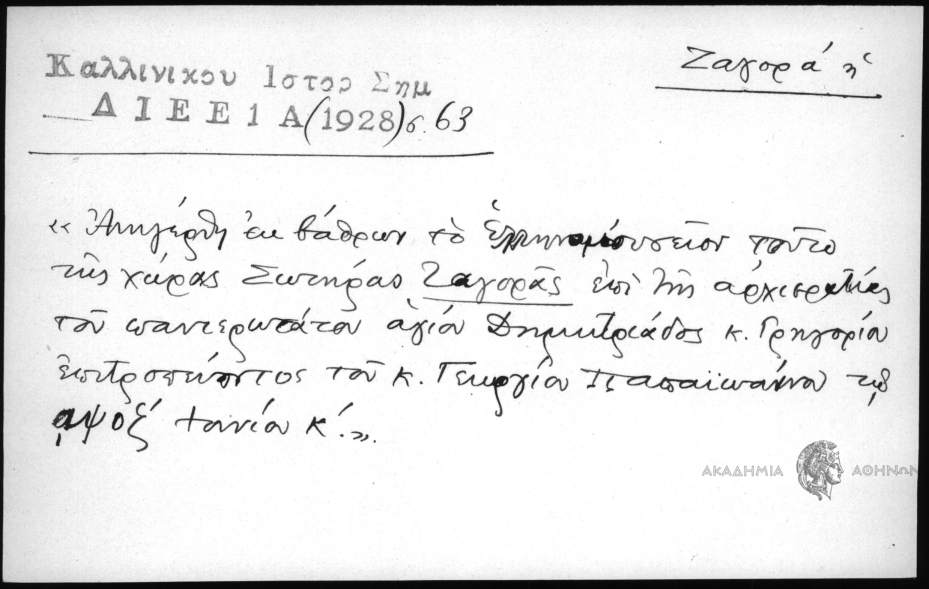 Καλλινικου Ιστορ Σημ
Ζαγορά ἡ
ΔΙΕΕ 1 Α (1928) σ. 63
« Ἀνηγέρθη ἐκ βάθρων τὸ Ἑλληνομουσεῖον τοῦτο
τῆς χώρας Σωτήρας Ζαγορᾶς ἐπὶ τῆς ἀρχιερατείας
τοῦ πανιερωτάτου ἁγίου Δημητριάδος κ. Γρηγορίου
ἐπιτροπεύοντος τοῦ κ. Γεωργίου Παπαϊωάννου τῷ
αψοξ´ Ἰουνίου κ´.».
ΑΚΑΔΗΜΙΑ ΑΘΗΝΩΝ